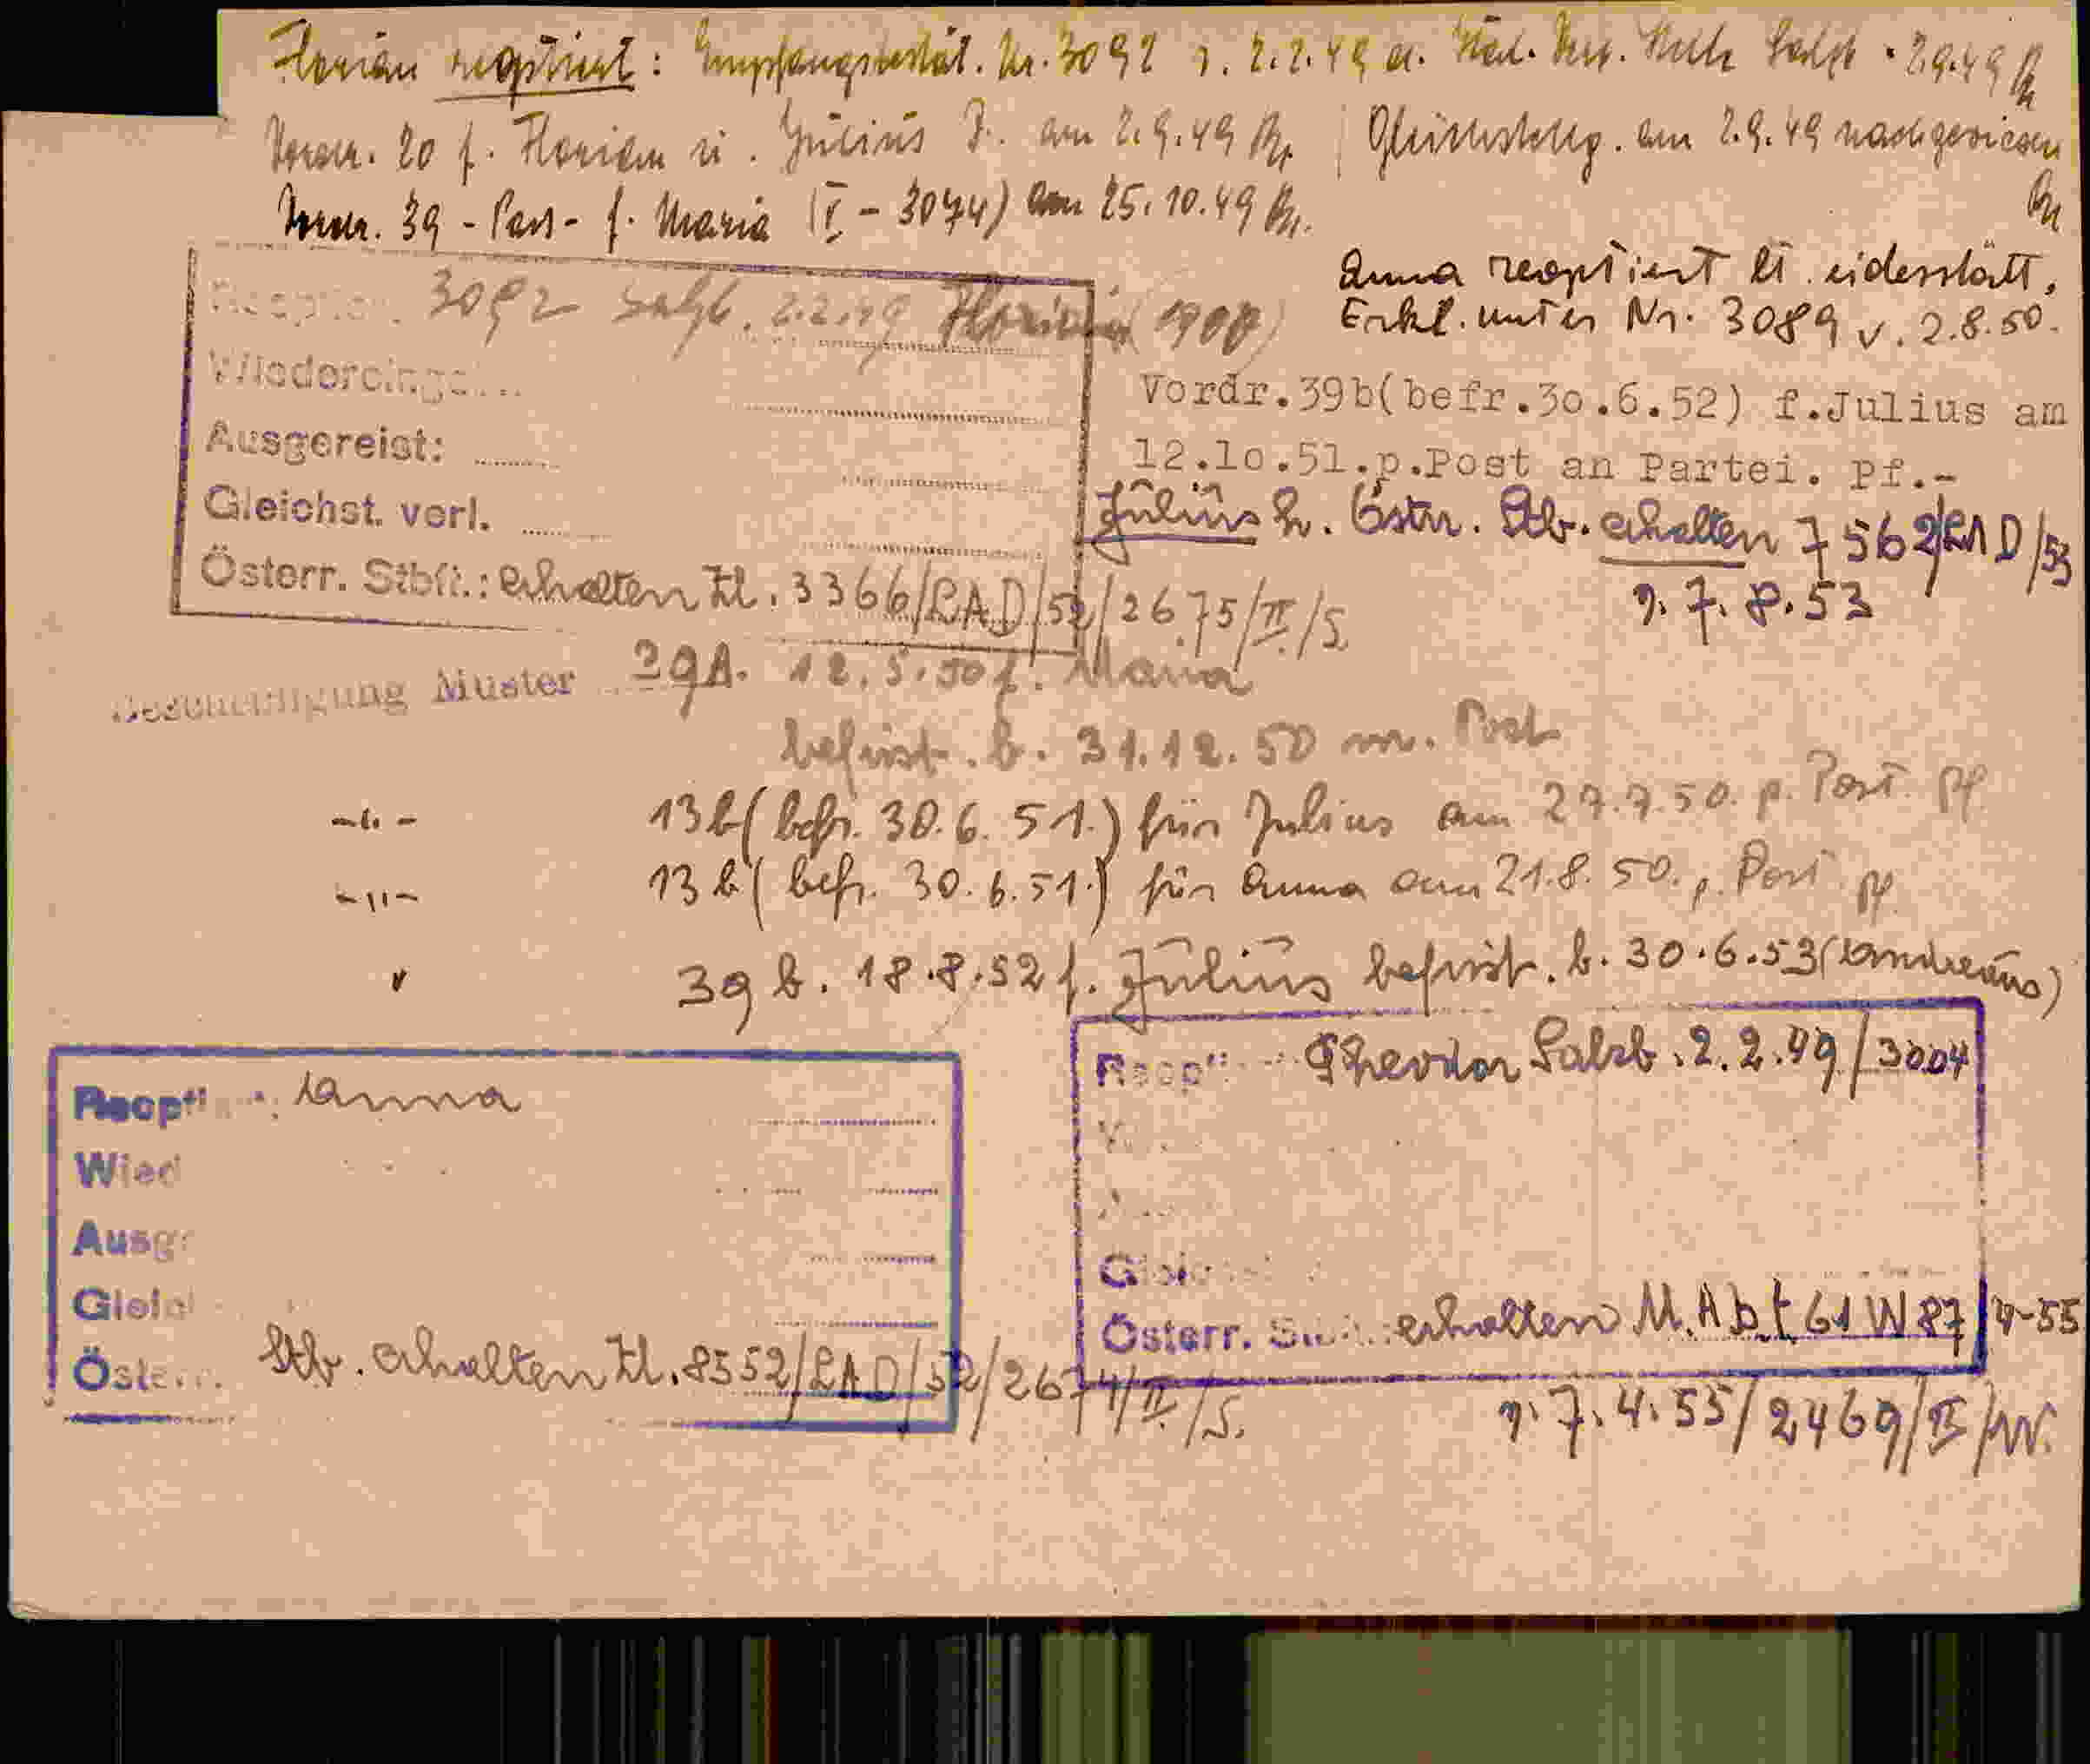 Florian reoptiert: Empfangsbestät. Nr. 3092 v. 2.2.49 a. Ital. Salzb. 2.9.49
Vordr. 20 f. Florian u. Julius J. am 2.9.49 Br. Gleichstellg. am 2.9.49 nachgewiesen
Br
Vordr. 39 - Pass - f. Maria (I - 3074) am 25.10.49 Br.
Anna reoptiert lt. eidesstatt.
Erkl. unter Nr. 3089 v. 2.8.50.
Reoption: 3092 Salzb. 2.2.49 Florian (1907)
Wiedereinge
Ausgereist:
Gleichst. verl.
Österr. Stbft.: erhalten Zl. 3366/LAD/52/2675/II/S.
Vordr.39b(befr.30.6.52) f.Julius am
12.10.51.p.Post an Partei. Pf.-
Julius h. Östr. Stb. erhalten 7562/LAD/53
v. 7.8.53
Bescheinigung Muster 39A. 12.5.50 f. Maria
befrist. b. 31.12.50 m. Post
-"- 13b (befr. 30.6.51.) für Julius am 27.7.50. p. Post. Pf.
-"- 13b (befr. 30.6.51.) für Anna am 21.8.50. p. Post Pf.
" 39 b. 18.8.52 f. Julius befrist. b. 30.6.53 (Andreäus)
Reopti Anna
Wied
Ausge
Gleich
Österr. Stb. erhalten Zl. 8552/LAD/52/2674/II/S.
Reopt Theodor Salzb. 2.2.49/3004
Gleich
Österr. St erhalten M.Abt 61 W 87/4-55
v. 7.4.55/2469/II/W.